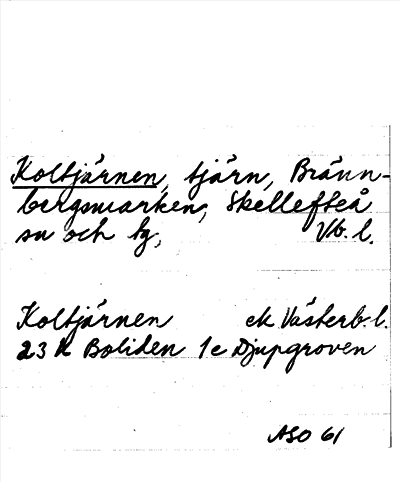 Koltjärnen, tjärn, Bränn-
bergsmarken, Skellefteå
sn och tg, Vb. l.
Koltjärnen ek. Västerb. l.
23 K Boliden 1c Djupgroven
ASO 61